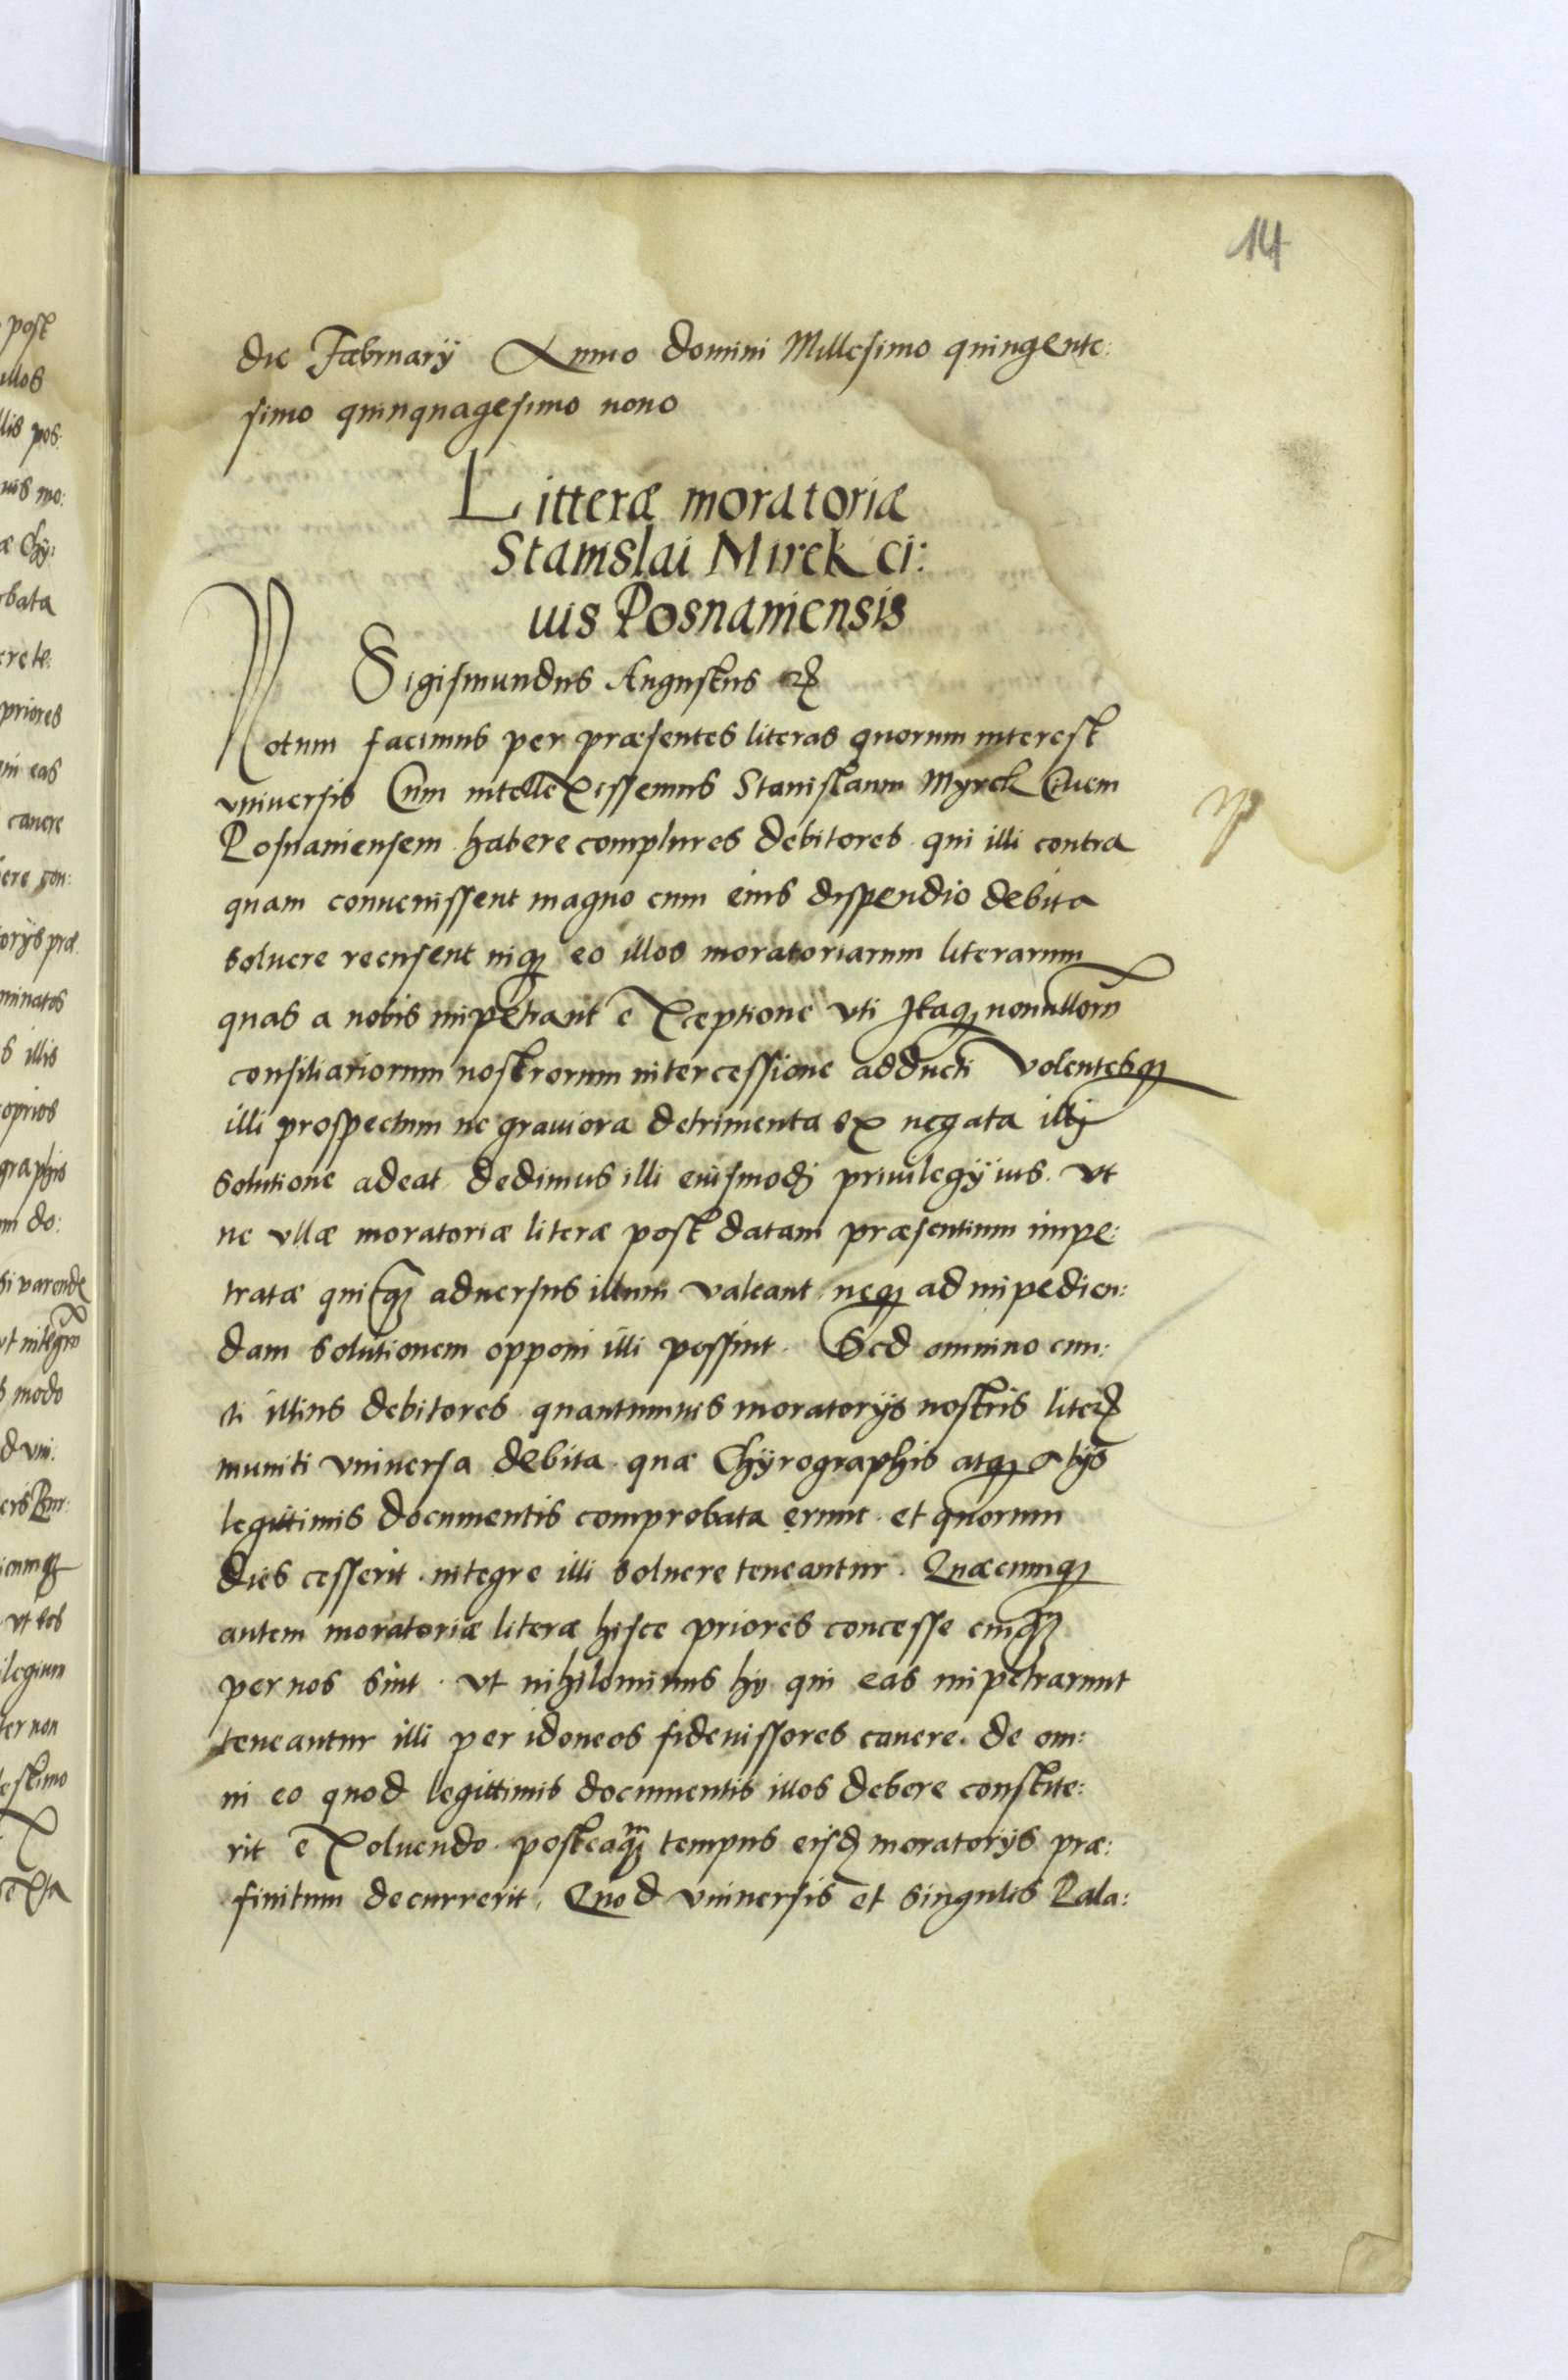 14
die Fæbruarÿ Anno Domini Millesimo quingente:
simo quinquagesimo nono
Litteræ moratoriæ
Stanislai Mirek ci:
uis Posnaniensis
Sigismundus Augustus etc
Notum facimus per præsentes literas quorum interest
vniuersis Cum intellexissemus Stanislaum Myrek Ciuem
Posnaniensem habere complures debitores qui illi contra
quam conuenissent magno cum eius dispendio debita
soluere recusent niq3 eo illos moratoriarum literarum
quas a nobis impetrant exceptione vti Itaq3 nonnullorũ
consiliariorum nostrorum intercessione adducti volentesq3
illi prospectum ne grauiora detrimenta ex negata illj
solutione adeat dedimus illi eiusmodj priuilegÿ ius. vt
ne vllæ moratoriæ literæ post datam præsentium impe:
tratæ quicq3 aduersus illum valeant neq3 ad impedien:
dam solutionem opponi illi possint. Sed omnino cun:
cti illius debitores quantumuis moratorÿs nostris literis
muniti vniuersa debita quæ Chÿrographis atq3 alÿs
legittimis documentis comprobata erunt. et quorum
dies cesserit. integre illi soluere teneantur. Quæcunq3
autem moratoriæ literæ hisce priores concesse cuiq3
per nos sint. vt nihilominus hy qui eas impetrarunt
teneantur illi per idoneos fideiussores cauere. de om:
ni eo quod legittimis documentis illos debere constite:
rit exoluendo. posteaq3m tempus eisd moratorÿs præ:
finitum decurrerit. Quod vniuersis et singulis Pala: